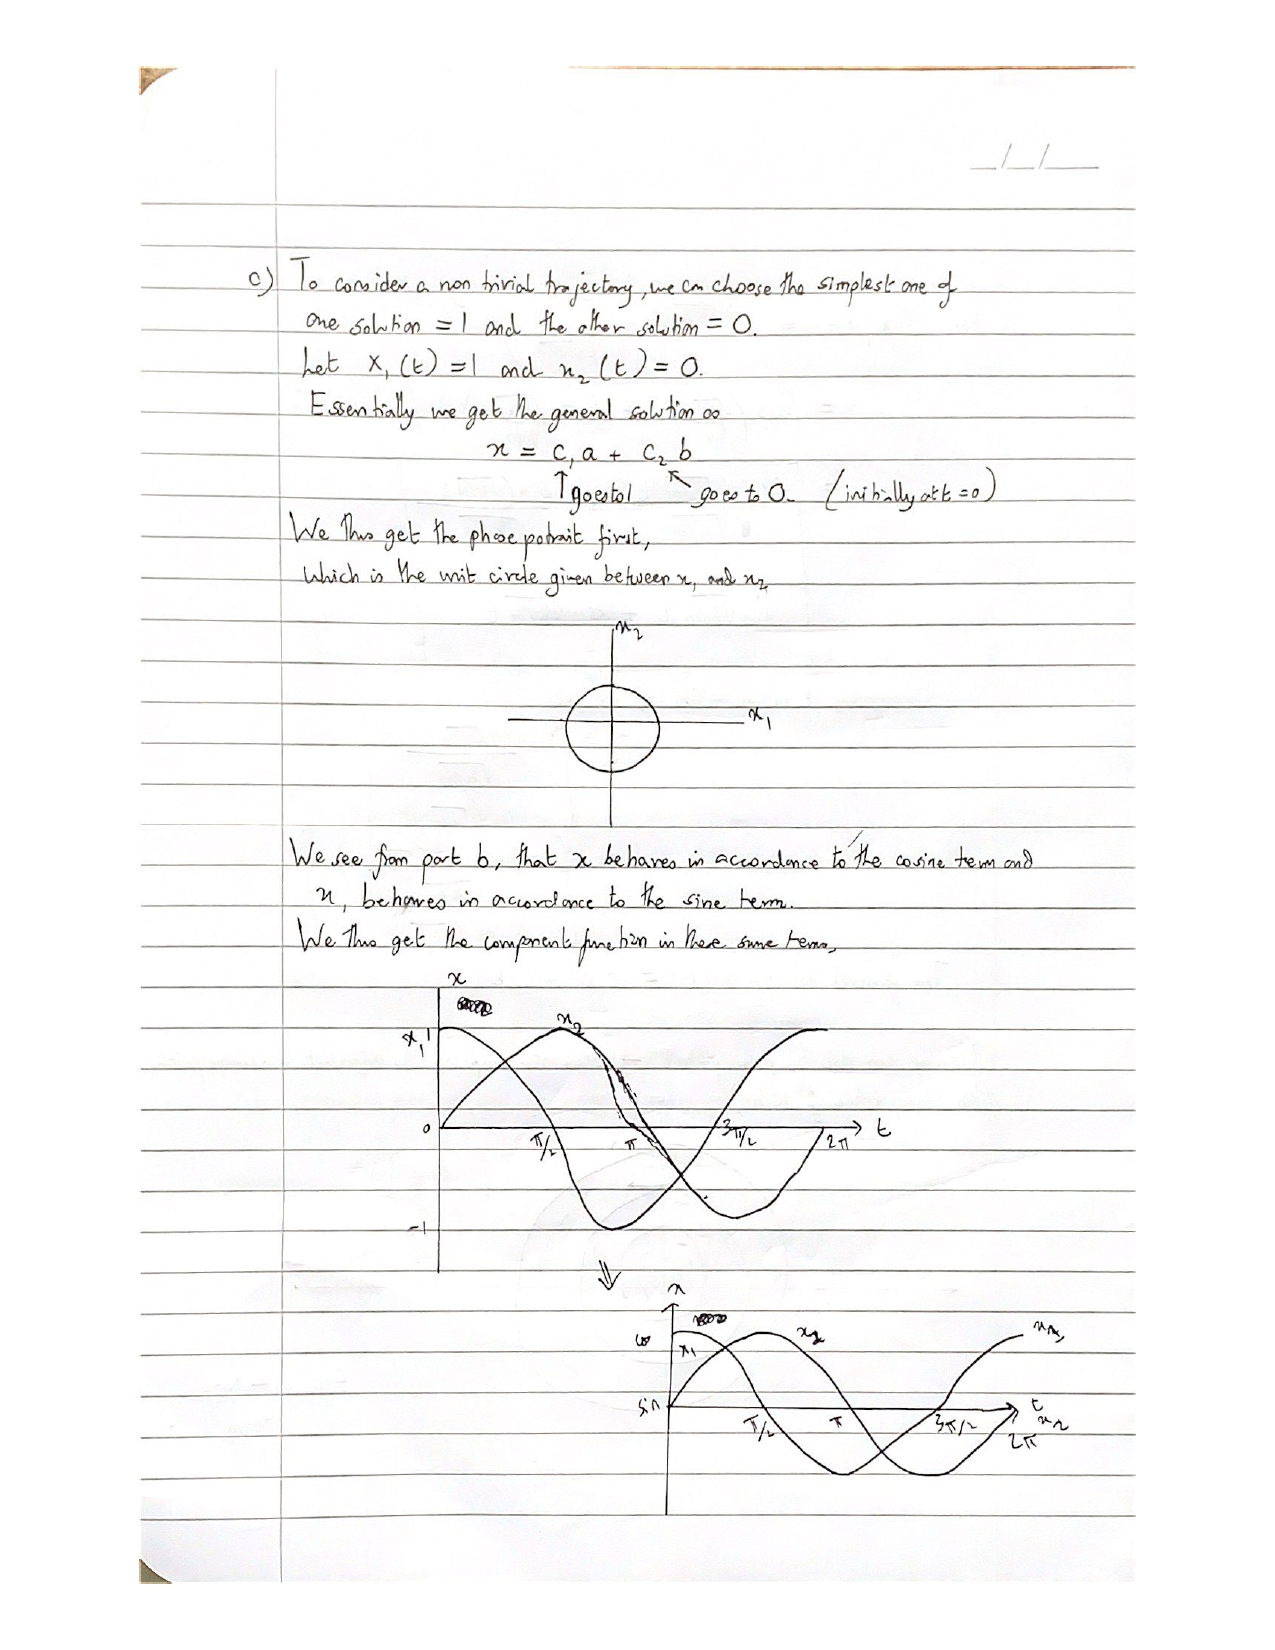 _/_/__
c) To consider a non trivial trajectory, we can choose the simplest one of
one solution = 1 and the other solution = 0.
Let x₁(t) = 1 and x₂(t) = 0.
Essentially we get the general solution as
x = c₁a + c₂b
↑goes to 1 ↖ goes to 0. (initially at t=0)
We thus get the phase potrait first,
Which is the unit circle given between x₁ and x₂
x₂
x₁
We see from part b, that x behaves in accordance to the cosine term and
x, behaves in accordance to the sine term.
We thus get the component function in these same terms,
x
x₁ 1 x₂
0 π/2 π 3π/2 2π t
-1
⇓
x
x₁ x₂
sin π/2 π 3π/2 t
x₂
2π